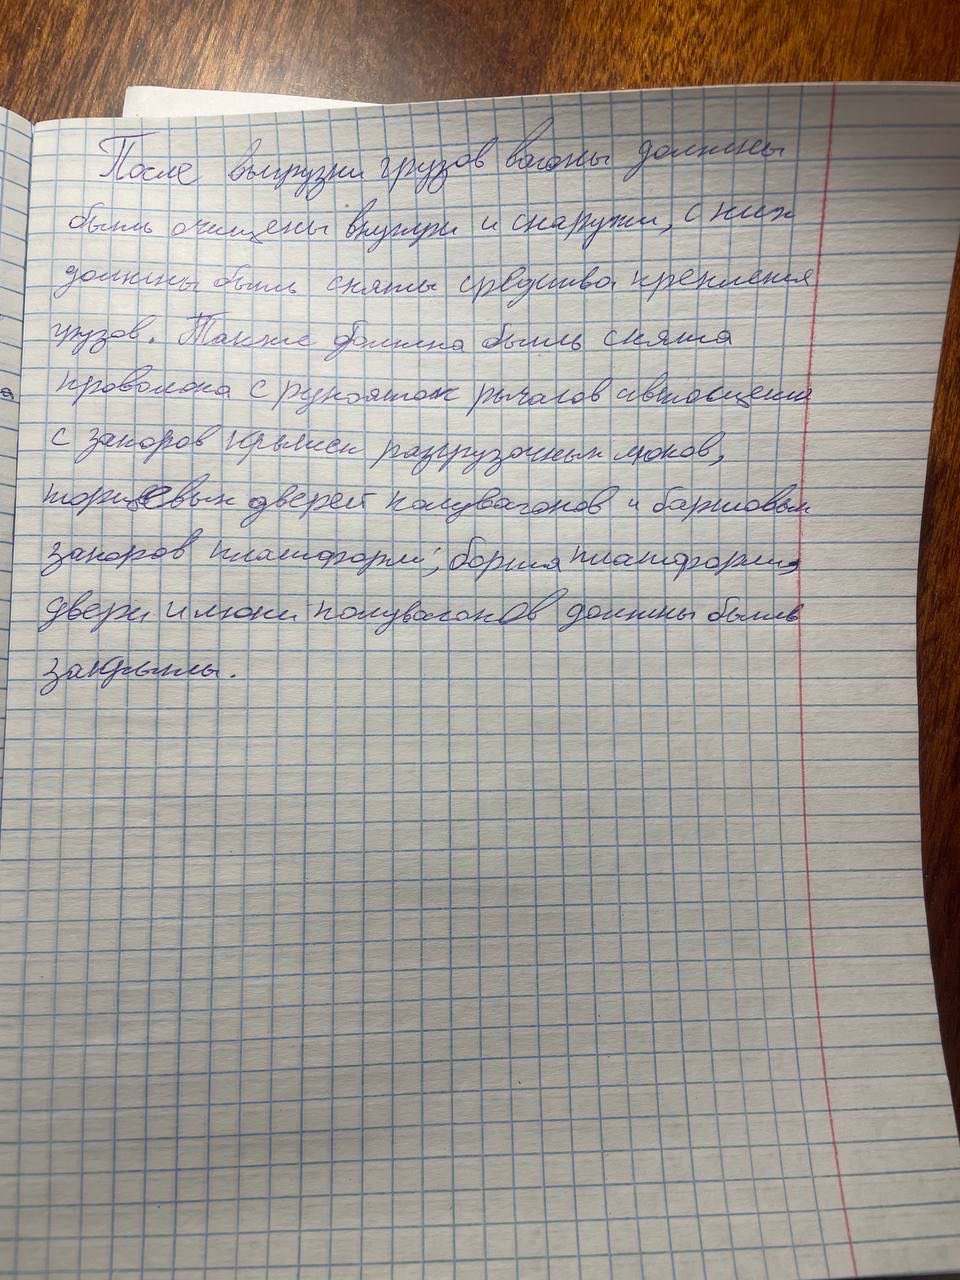 После выгрузки грузов вагоны должны
быть очищены внутри и снаружи, с них
должны быть сняты средства крепления
грузов. Также должна быть снята
проволока с рукояток рычагов автосцепки
с запоров крышек разгрузочных люков,
торцевых дверей полувагонов и бортовых
запоров платформ; борта платформы,
двери и люки полувагонов должны быть
закрыты.